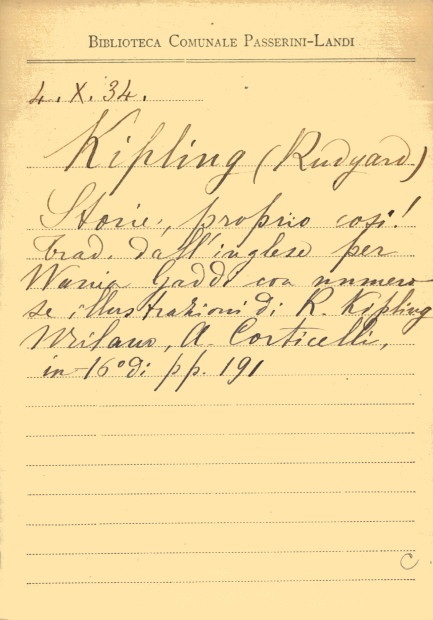 BIBLIOTECA COMUNALE PASSERINI-LANDI
4. X. 34.
Kipling (Rudyard)
Storie, proprio così!
trad. dall'inglese per
Gaddi con numero
se illustrazioni di R. Kipling
Milano, A. Corticelli,
in-16° di pp. 191
C